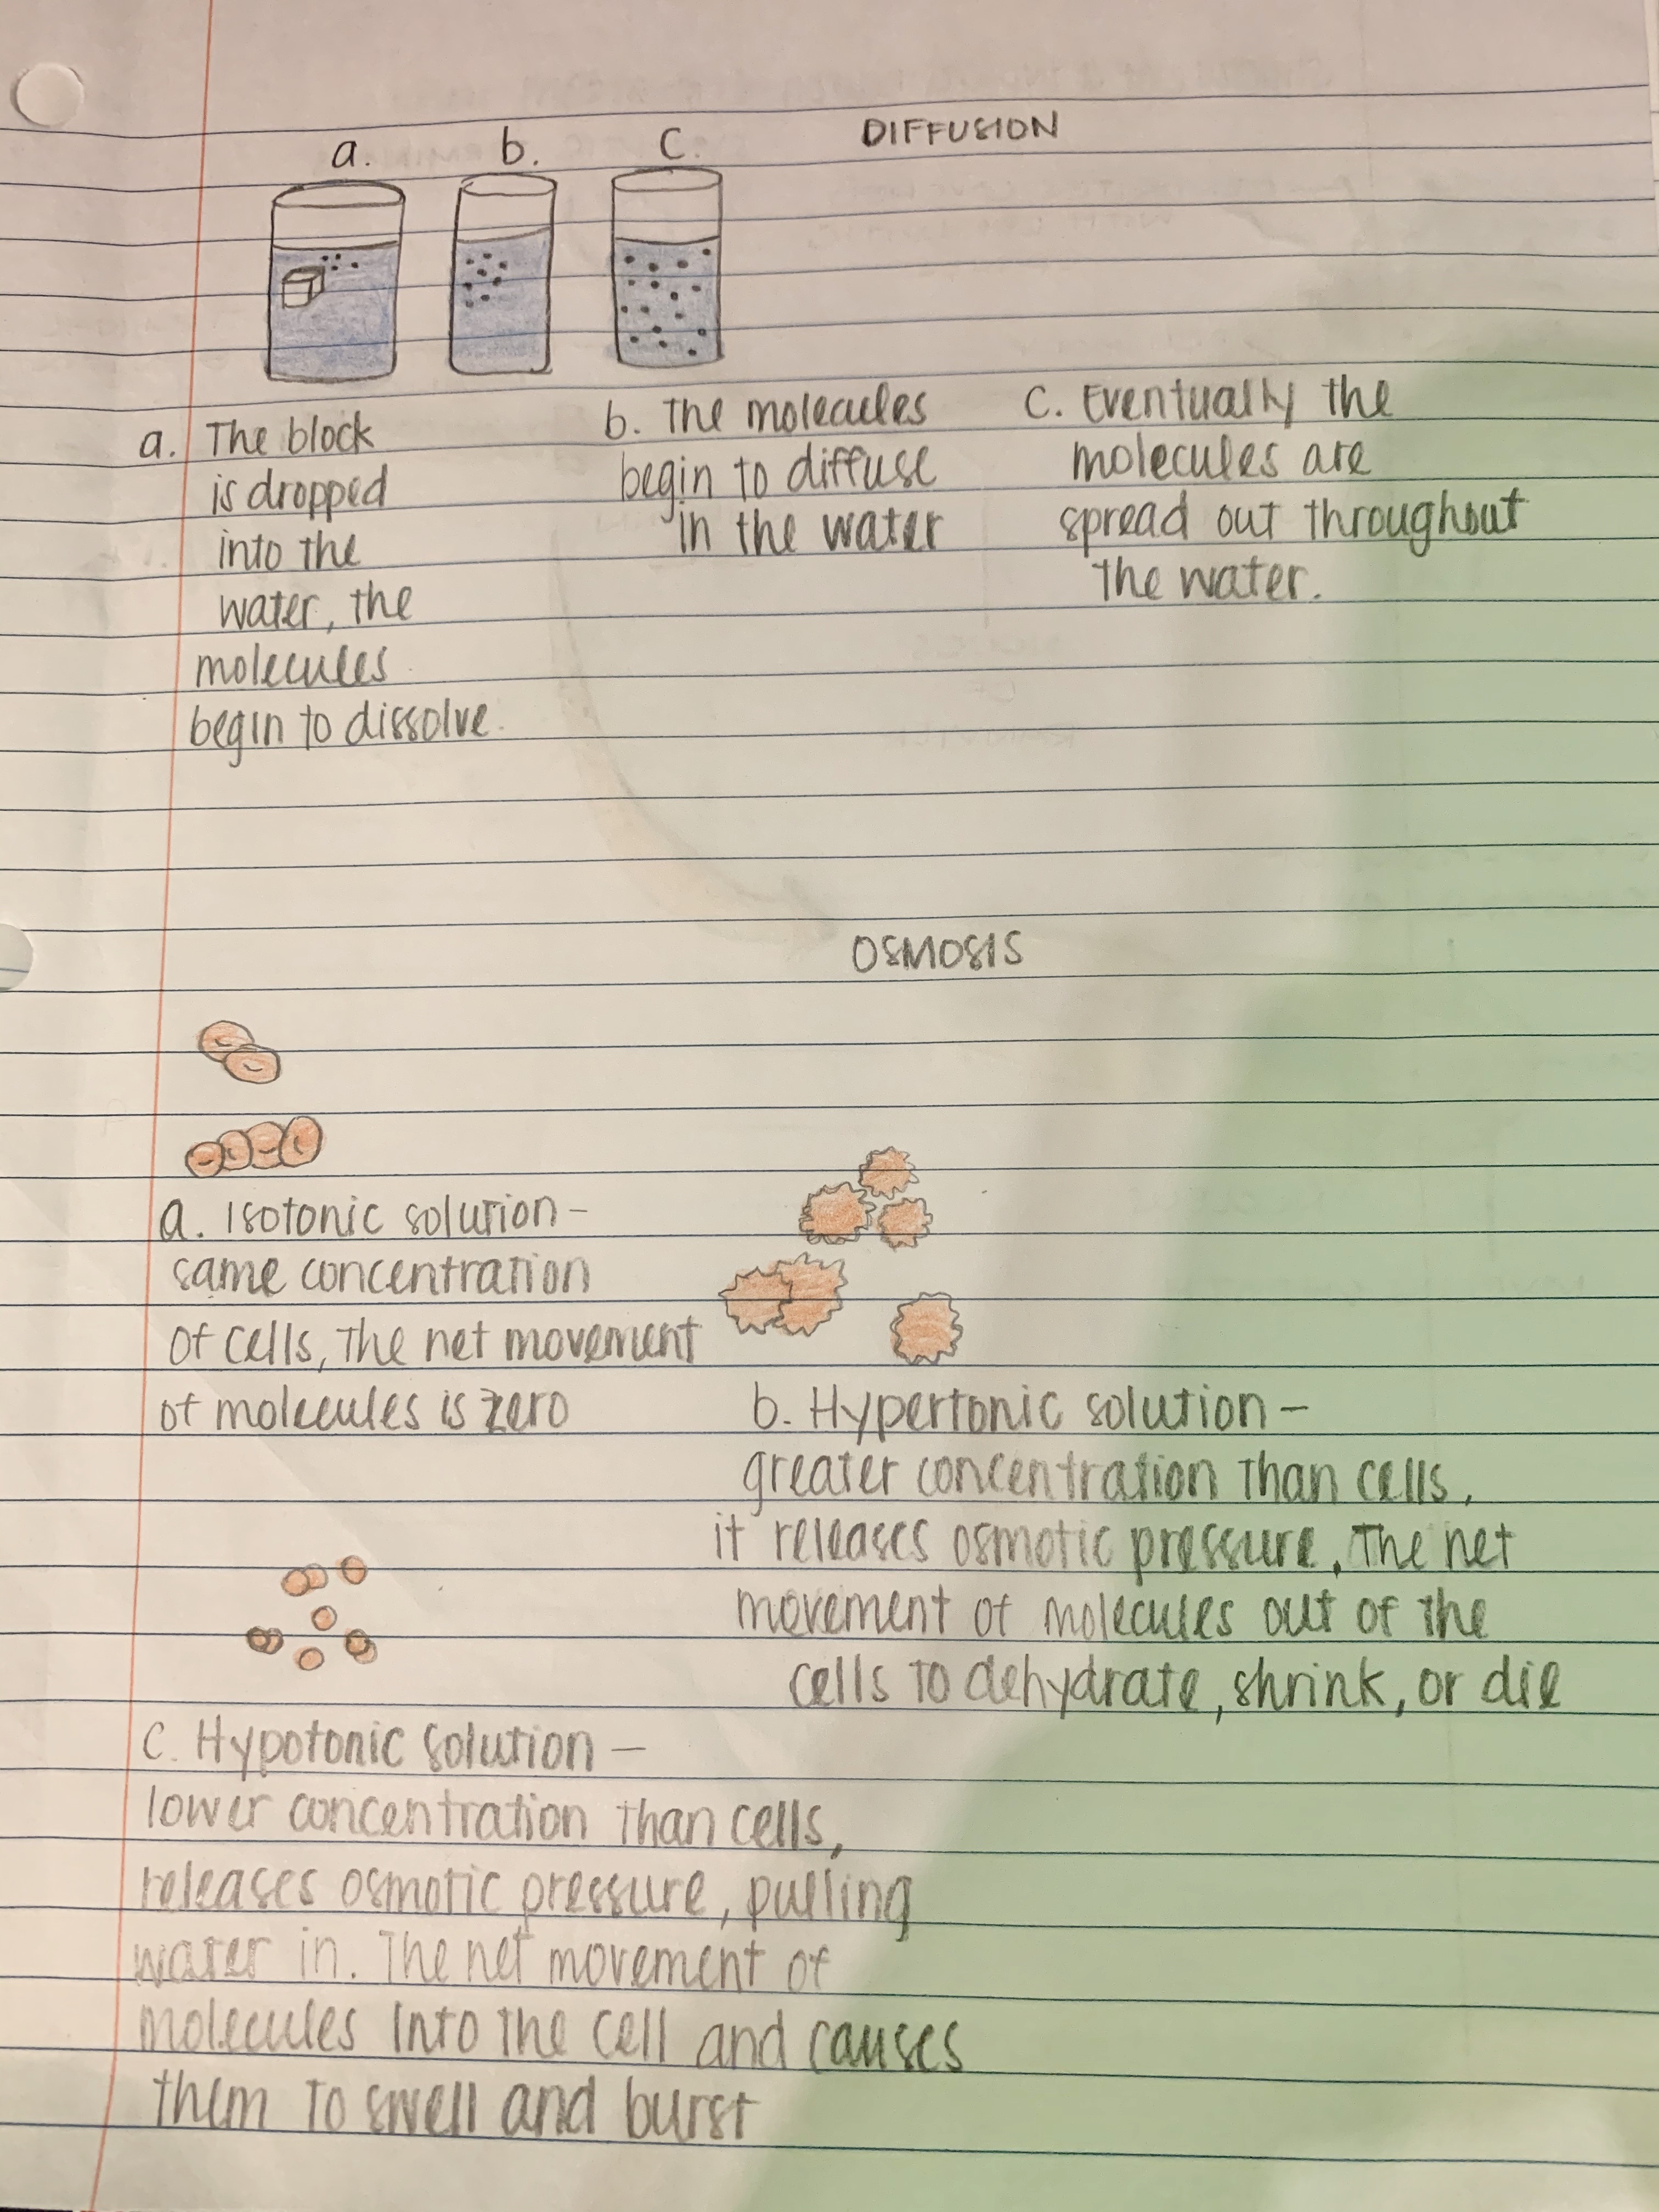 DIFFUSION
a.
b.
c.
a. The block
is dropped
into the
water, the
molecules
begin to dissolve.
b. The molecules
begin to diffuse
in the water
c. Eventually the
molecules are
spread out throughout
the water.
OSMOSIS
a. Isotonic solution -
same concentration
of cells, the net movement
of molecules is zero
b. Hypertonic solution -
greater concentration than cells,
it releases osmotic pressure, The net
movement of molecules out of the
cells to dehydrate, shrink, or die
c. Hypotonic solution -
lower concentration than cells,
releases osmotic pressure, pulling
water in. The net movement of
molecules into the cell and causes
them to swell and burst